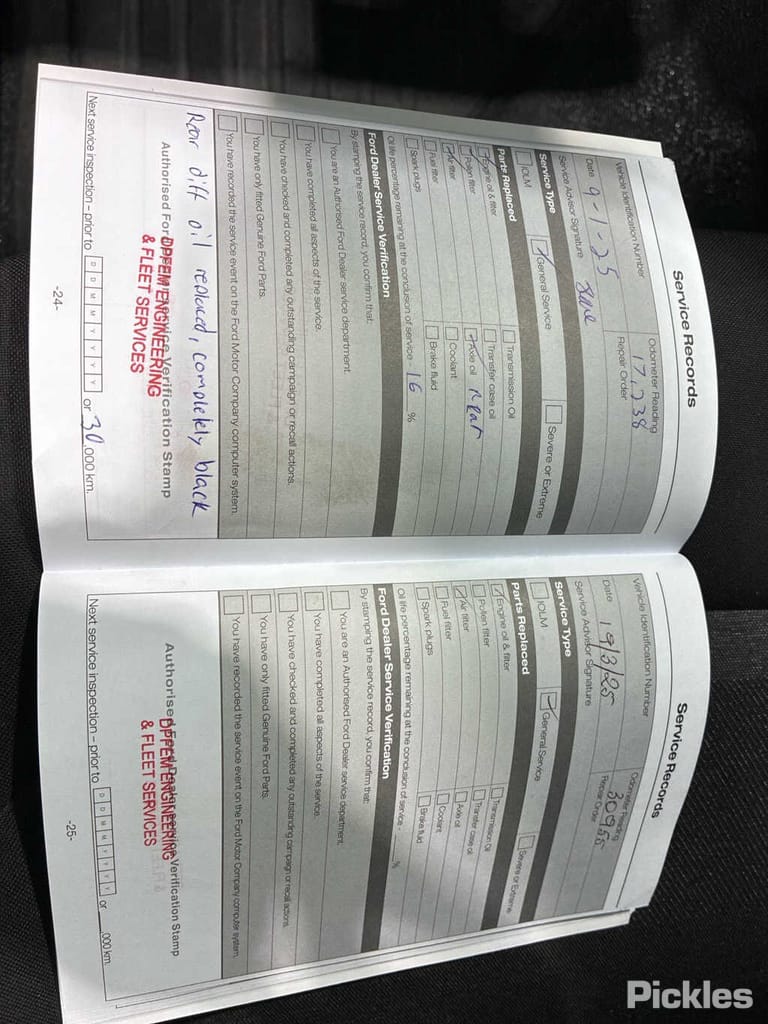 Service Records
Vehicle Identification Number
Odometer Reading
17,738
Date 9-1-25
Repair Order
Service Advisor Signature
Service Type
IOLM
General Service
Severe or Extreme
Parts Replaced
Engine oil & filter
Transmission Oil
Pollen filter
Transfer case oil
Air filter
Axle oil Rear
Fuel filter
Coolant
Spark plugs
Brake fluid
Oil life percentage remaining at the conclusion of service 16 %
Ford Dealer Service Verification
By stamping the service record, you confirm that:
You are an Authorised Ford Dealer service department.
You have completed all aspects of the service.
You have checked and completed any outstanding campaign or recall actions.
You have only fitted Genuine Ford Parts.
You have recorded the service event on the Ford Motor Company computer system.
Rear diff oil replaced, completely black
Authorised Ford Dealer service Verification Stamp
DPFEM ENGINEERING
& FLEET SERVICES
Next service inspection – prior to D D M M Y Y Y Y or 30,000 km.
-24-
Service Records
Vehicle Identification Number
Odometer Reading
30955
Date 19/3/25
Repair Order
Service Advisor Signature
Service Type
IOLM
General Service
Severe or Extreme
Parts Replaced
Engine oil & filter
Transmission Oil
Pollen filter
Transfer case oil
Air filter
Axle oil
Fuel filter
Coolant
Spark plugs
Brake fluid
Oil life percentage remaining at the conclusion of service - %
Ford Dealer Service Verification
By stamping the service record, you confirm that:
You are an Authorised Ford Dealer service department.
You have completed all aspects of the service.
You have checked and completed any outstanding campaign or recall actions.
You have only fitted Genuine Ford Parts.
You have recorded the service event on the Ford Motor Company computer system.
Authorised Ford Dealer service Verification Stamp
DPFEM ENGINEERING
& FLEET SERVICES
Next service inspection – prior to D D M M Y Y Y Y or ,000 km.
-25-
Pickles